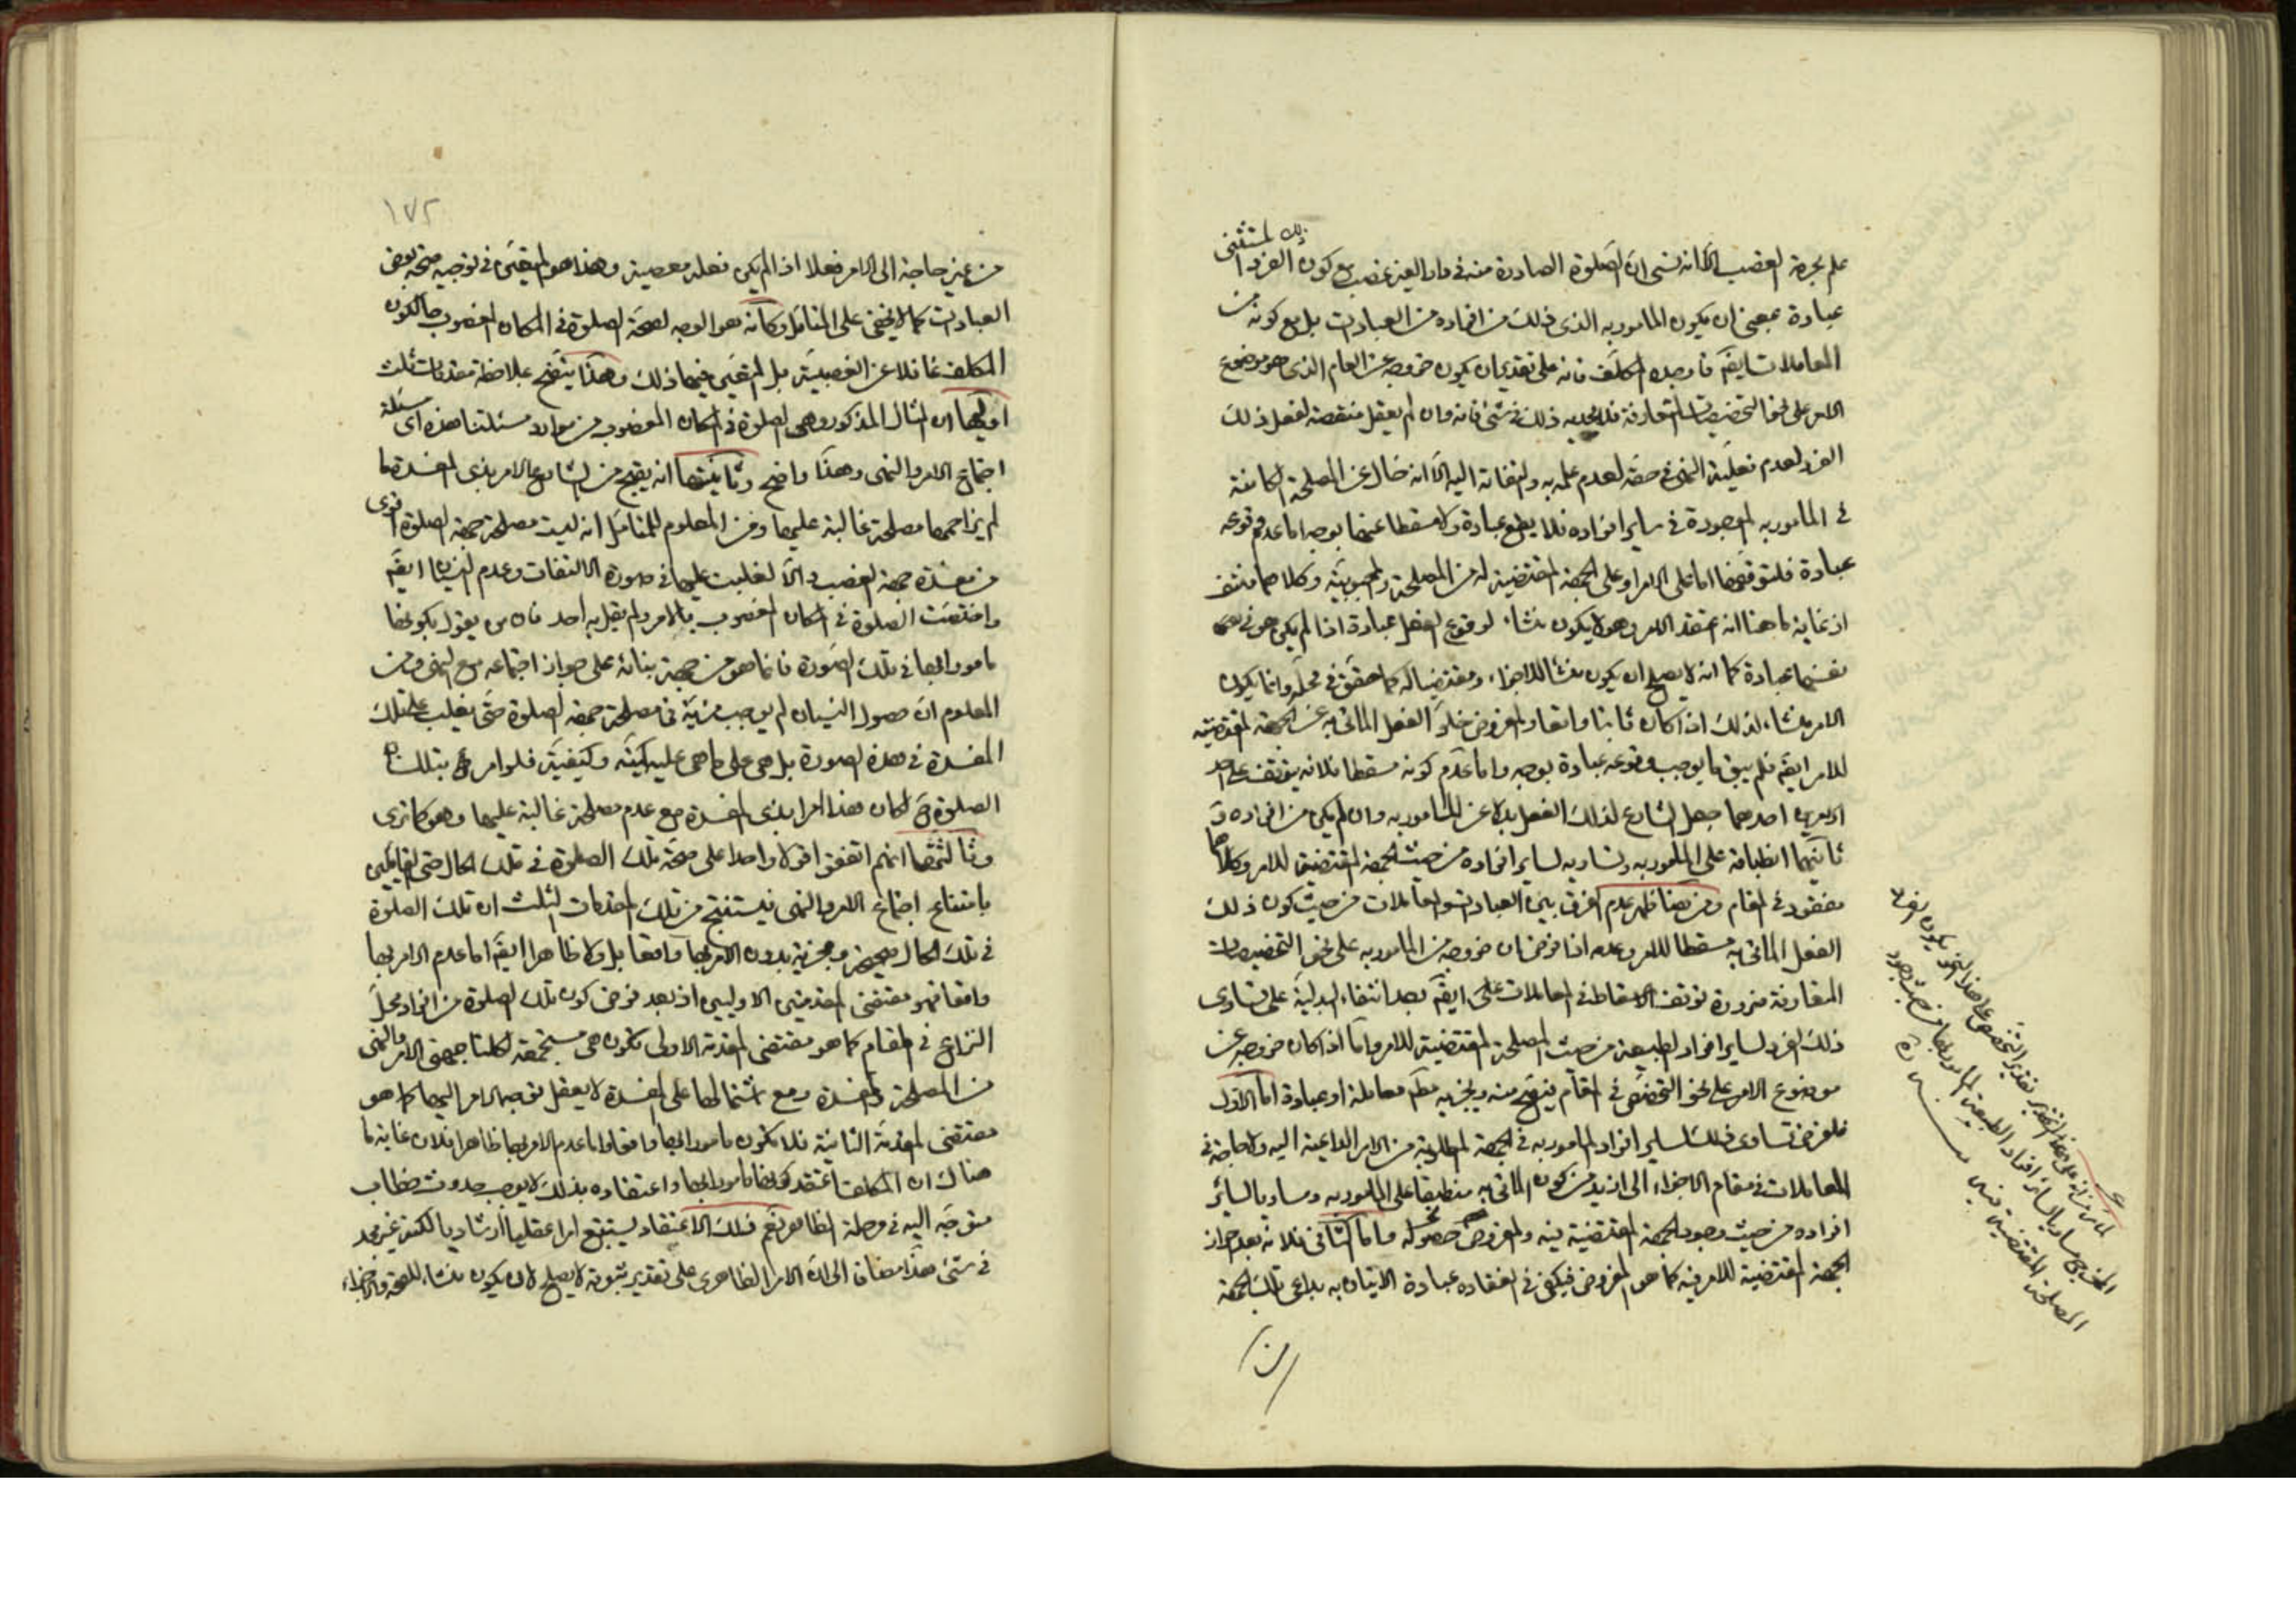 علم بحرمة الغصب الا انه نسي ان الصلوة الصادرة منه في دار الغير غصب مع كون الفرد المستثنى
عبادة بمعنى ان يكون المامور به الذي ذلك من افراده من العبادات بل مع كونه من
المعاملات ايضا فاوجده المكلف فانه على تقدير ان يكون خروجه عن العام الذي هو موضوع
الامر على نحو التخصيصات المتعارفة فلا يجديه ذلك في شئ فانه وان لم يعقل منقصة لفعل ذلك
الفرد لعدم فعلية النهي في حقه لعدم علمه به والتفاته اليه الا انه خال عن المصلحة الكامنة
في المامور به الموجودة في ساير افراده فلا يقع عبادة ولا مسقطا عنها بوجه اما عدم وقوعه
عبادة فلتوقفها اما على الامر او على الجهة المقتضية له من المصلحة والمحبوبية وكلاهما منتف
اذ غاية ما هنا انه يعتقد الامر وهو لا يكون منشاء لوقوع الفعل عبادة اذا لم يكن هو في
نفسها عبادة كما انه لا يصلح ان يكون منشأ للاجزاء ومقتضيا له كما حقق في محله وانما يكون
الامر منشاء لذلك اذا كان ثابتا واقعا والمفروض خلو الفعل الماتى به عن الجهة المقتضية
للامر ايضا فلم يبق ما يوجب وقوعه عبادة بوجه واما عدم كونه مسقطا فلانه يتوقف على احد
امرين احدهما جعل الشارع لذلك الفعل بدلا عن المامور به وان لم يكن من افراده و
ثانيهما انطباقه على المامور به وتساويه لساير افراده من حيث الجهة المقتضية للامر وكلاهما
مفقود في المقام ومن هنا ظهر عدم الفرق بين العبادات والمعاملات من حيث كون ذلك
الفعل الماتى به مسقطا للامر وعدمه اذا فرض ان خروجه من المامور به على نحو التخصيصات
المتعارفة ضرورة توقف الاسقاط في المعاملات ايضا بعد انتفاء البدلية على تساوى
ذلك الفرد لساير افراد الطبيعة من حيث المصلحة المقتضية للامر واما اذا كان خروجه عن
موضوع الامر على نحو التخصيص في المقام فيصح منه ويجزيه مطلقا معاملة او عبادة اما الاول
فلفرض تساوى ذلك لساير افراد المامور به في الجهة المطلوبة من الامر الداعية اليه ولا حاجة في
المعاملات في مقام الاجزاء الى ازيد من كون الماتى به منطبقا على المامور به ومساويا لسائر
افراده من حيث وجود الجهة المقتضية فيه والمفروض حصوله واما الثاني فلانه بعد احراز
الجهة المقتضية للامر فيه كما هو المفروض فيكفي في انعقاده عبادة الاتيان به بداعى تلك الجهة
من
المصلحة المقتضية
١٧٢
من غير حاجة الى الامر فعلا اذا لم يكن فعله معصية وهذا هو المتعين في توجيه صحة بعض
العبادات كما لا يخفى على المتامل وكانه هو الوجه لصحة الصلوة في المكان المغصوب حال كون
المكلف غافلا عن الغصبية بل المتعين فيها ذلك وهذا يتضح بملاحظة مقدمات ثلث
اوليها ان المثال المذكور وهي الصلوة في المكان المغصوب من موارد مسئلتنا هذه اى مسئلة
اجتماع الامر والنهى وهذا واضح وثانيتها انه يقبح من الشارع الامر بذى المفسدة ما
لم يزاحمها مصلحة غالبة عليها ومن المعلوم للمتامل انه ليست مصلحة جهة الصلوة اقوى
من مفسدة جهة الغصب والا لغلبت عليها في صورة الالتفات وعدم النسيان ايضا
واقتضت الصلوة في المكان المغصوب بالامر ولم يقل به احد فان من يقول بكونها
مامورا بها في تلك الصورة فانما هو من جهة بنائه على جواز اجتماعه مع النهى ومن
المعلوم ان حصول النسيان لم يوجب مزية في مصلحة جهة الصلوة حتى يغلب على تلك
المفسدة في هذه الصورة بل هي على ما هي عليه كمية وكيفية فلو امر بتلك
الصلوة ح لكان هذا امرا بذى المفسدة مع عدم مصلحة غالبة عليها وهو كما ترى
وثالثتها انهم اتفقوا قولا واحدا على صحة تلك الصلوة في تلك الحال حتى القائلين
بامتناع اجتماع الامر والنهى فيستنتج من تلك المقدمات الثلث ان تلك الصلوة
في تلك الحال صحيحة ومجزية بدون الامر بها واقعا بل ولا ظاهرا ايضا اما عدم الامر بها
واقعا فهو مقتضى المقدمتين الاوليين اذ بعد فرض كون تلك الصلوة من افراد محل
النزاع في المقام كما هو مقتضى المقدمة الاولى تكون هي مستجمعة لكلتا جهتى الامر والنهى
من المصلحة والمفسدة ومع اشتمالها على المفسدة لا يعقل توجه الامر اليها كما هو
مقتضى المقدمة الثانية فلا تكون مامورا بها واقعا واما عدم الامر بها ظاهرا فلان غاية ما
هناك ان المكلف اعتقد كونها مامورا بها واعتقاده بذلك لا يوجب حدوث خطاب
متوجه اليه في مرحلة الظاهر نعم ذلك الاعتقاد يستتبع امرا عقليا ارشاديا لكنه غير مجد
في شئ هذا مضافا الى ان الامر الظاهرى على تقدير ثبوته لا يصلح لان يكون منشاء للصحة والاجزاء